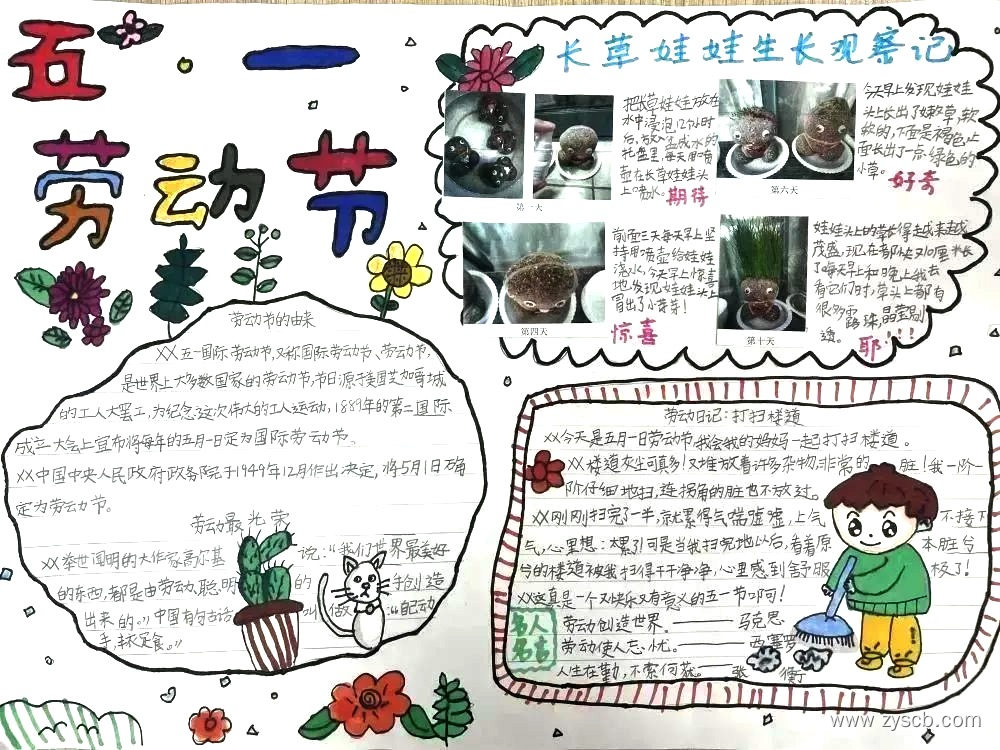 五一
劳动节
长草娃娃生长观察记
把长草娃娃放在
水中浸泡12小时
后,放入盛水的
托盘里,每天用喷
壶在长草娃娃头
上喷水。期待
第一天
今天早上发现娃娃
头上长出了嫩草,软
软的,下面是褐色,上
面长出了一点绿色的
小草。
好奇
第六天
前面三天每天早上坚
持用喷壶给娃娃
浇水,今天早上惊喜
地发现娃娃头上
冒出了小芽芽!
惊喜
第四天
娃娃头上的草长得越来越
茂盛,现在都快又10厘米长
了每天早上和晚上我去
看它们时,草头上都有
很多露珠,晶莹剔
透。耶!!!
第十天
劳动节的由来
XX五一国际劳动节,又称国际劳动节、劳动节,
是世界上大多数国家的劳动节,节日源于美国芝加哥城
的工人大罢工,为纪念这次伟大的工人运动,1889年的第二国际
成立大会上宣布将每年的五月一日定为国际劳动节。
XX中国中央人民政府政务院于1949年12月作出决定,将5月1日确
定为劳动节。
劳动最光荣
XX举世闻明的大作家高尔基说:“我们世界最美好
的东西,都是由劳动、聪明的手创造
出来的。”中国有句古话叫做:“自己动
手,丰衣足食。”
劳动日记:打扫楼道
XX今天是五月一日劳动节,我会我的妈妈一起打扫楼道。
XX楼道灰尘可真多!又堆放着许多杂物,非常的脏!我一阶一
阶仔细地扫,连拐角的脏也不放过。
XX刚刚扫完了一半,就累得气喘嘘嘘,上气不接下
气,心里想:太累了!可是当我扫完地以后,看着原本脏兮
兮的楼道被我扫得干干净净,心里感到舒服极了!
XX这真是一个又快乐又有意义的五一节啊!
名人
名言
劳动创造世界。——马克思
劳动使人忘忧。——西塞罗
人生在勤,不索何获。——张衡
www.zyscb.com